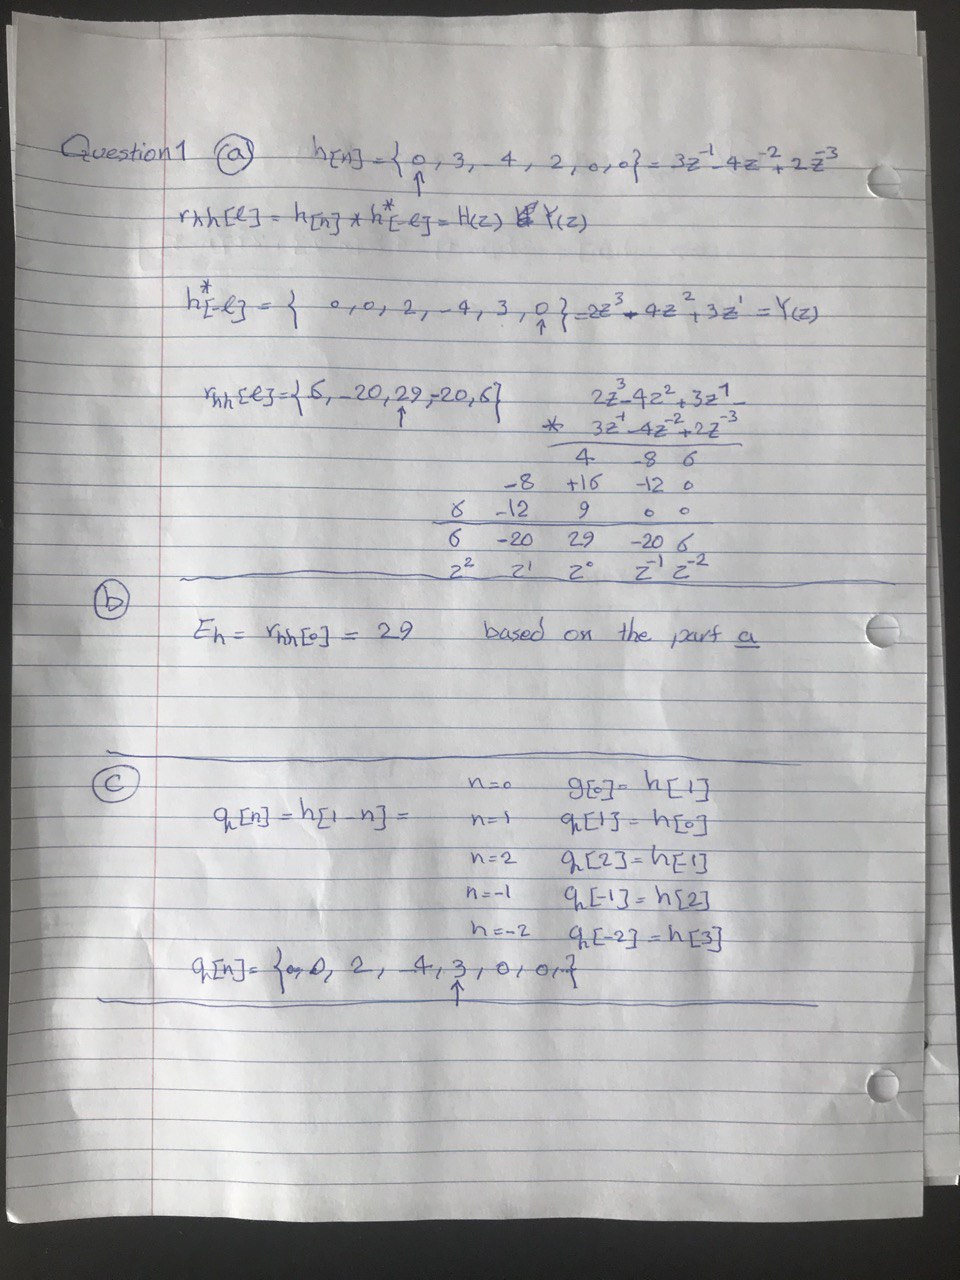 Question 1 (a) h[n] = { 0, 3, -4, 2, 0, 0 } = 3z^-1 - 4z^-2 + 2z^-3
↑
rhh[ℓ] = h[n] * h*[-ℓ] = H(z) Y(z)
h*[-ℓ] = { 0, 0, 2, -4, 3, 0 } = 2z^3 - 4z^2 + 3z^1 = Y(z)
↑
rhh[ℓ] = { 6, -20, 29, -20, 6 } 2z^3 - 4z^2 + 3z^1
↑ * 3z^-1 - 4z^-2 + 2z^-3
4 -8 6
-8 +16 -12 0
6 -12 9 0 0
6 -20 29 -20 6
z^2 z^1 z^0 z^-1 z^-2
(b)
Eh = rhh[0] = 29 based on the part a
(c)
n=0 g[0] = h[1]
g[n] = h[1-n] = n=1 g[1] = h[0]
n=2 g[2] = h[-1]
n=-1 g[-1] = h[2]
n=-2 g[-2] = h[3]
g[n] = { 0, 0, 2, -4, 3, 0, 0, }
↑